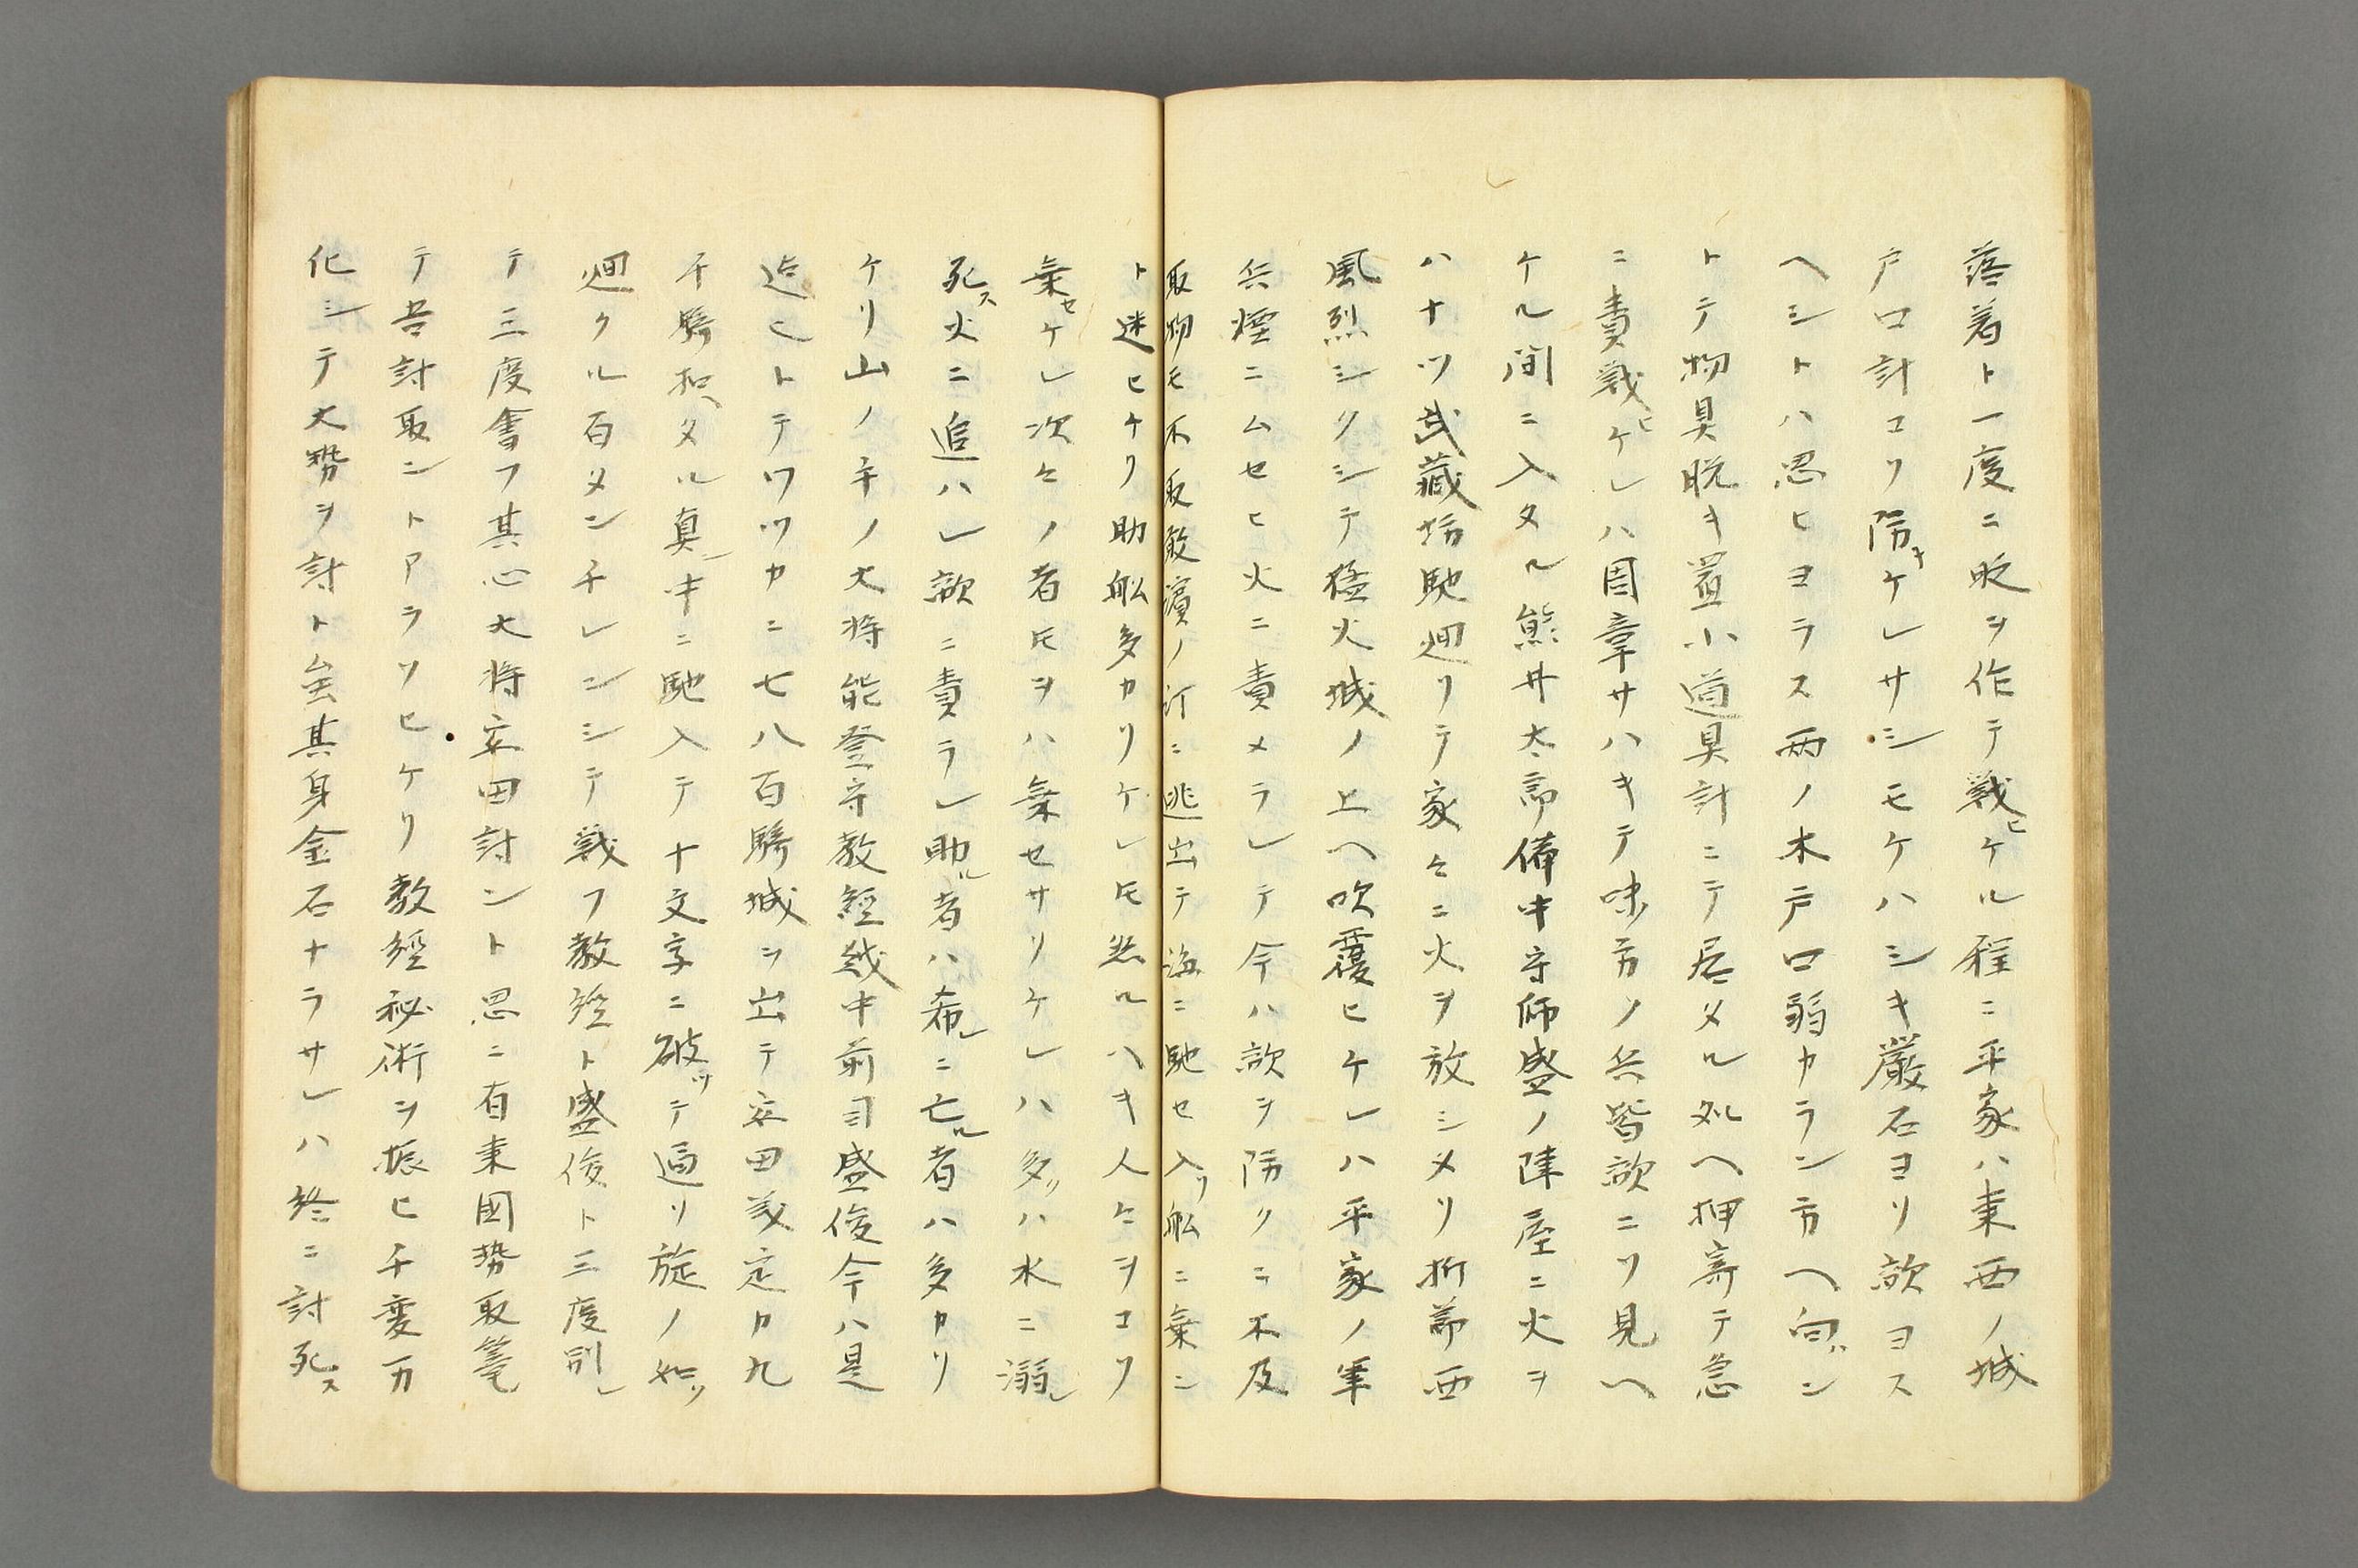 落着ト一度ニ時ヲ作テ戦ヒケル程ニ平家ハ東西ノ城
戸口計コソ防キケレサシモケハシキ巌石ヨリ敵ヨス
ヘシトハ思ヒヨラス両ノ木戸口弱カラン方ヘ向ハン
トテ物具脱キ置小道具計ニテ居タル処ヘ押寄テ急
ニ責戦ヒケレハ周章サハキテ味方ノ兵皆敵ニソ見ヘ
ケル間ニ入タル熊井太郎備中守師盛ノ陣屋ニ火ヲ
ハナツ武藏坊馳廻リテ家々ニ火ヲ放シメリ折節西
風烈シクシテ猛火城ノ上ヘ吹覆ヒケレハ平家ノ軍
兵煙ニムセヒ火ニ責メラレテ今ハ敵ヲ防クニ不及
取物モ不取敢濱ノ汀ニ逃出テ海ニ馳セ入リ舩ニ乗ン
ト迷ヒケリ助舩多カリケレ𪜈然ルヘキ人々ヲコソ
乗セケレ次々ノ者𪜈ヲハ乗セサリケレハ多ハ水ニ溺レ
死ス火ニ追ハレ敵ニ責ラレ助ル者ハ希レニ亡ル者ハ多カリ
ケリ山ノ手ノ大将能登守教經越中前司盛俊今ハ是
迠ヒトテワツカニ七八百騎城ヲ出テ安田義定カ九
千騎扣ヘタル真中ニ馳入テ十文字ニ破ツテ通リ旋ノ如ソ
廻クル百メンチレンシテ戦フ教經ト盛俊ト三度別レ
テ三度會フ其心大将安田討ント思ニ有東國勢取篭
テ吾討取ントアラソヒケリ教經秘術ヲ振ヒ千変万
化シテ大勢ヲ討ト虽其身金石ナラサレハ終ニ討死ス